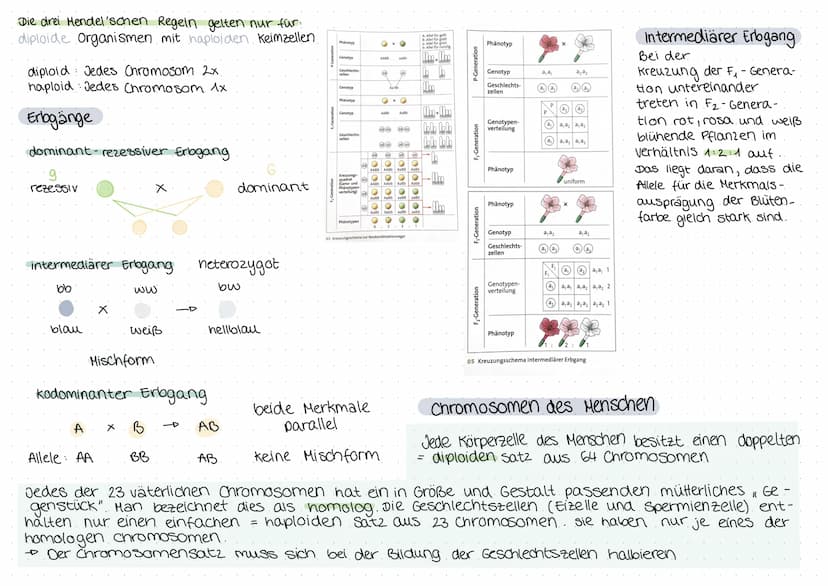 Die drei Mendel'schen Regeln gelten nur für
diploide Organismen mit haploiden Keimzellen
diploid : Jedes Chromosom 2x
haploid : Jedes Chromosom 1x
Erbgänge
dominant-rezessiver Erbgang
g G
rezessiv x dominant
intermediärer Erbgang heterozygot
bb ww bw
x →
blau weiß hellblau
Mischform
kodominanter Erbgang
A x B → AB
Allele: AA BB AB
beide Merkmale
parallel
keine Mischform
Phänotyp
Genotyp
Geschlechts-
zellen
Phänotyp
Genotyp
Geschlechts-
zellen
Phänotypen
P-Generation
Phänotyp x
Genotyp a₁a₁ a₂a₂
Geschlechts-
zellen a₁ a₁ a₂ a₂
F₁-Generation
Genotypen-
verteilung
P
P a₂ a₂
a₁ a₁a₂ a₁a₂
a₁ a₁a₂ a₁a₂
Phänotyp
uniform
F₁-Generation
Phänotyp x
Genotyp a₁a₂ a₁a₂
Geschlechts-
zellen a₁ a₂ a₁ a₂
F₂-Generation
Genotypen-
verteilung
F₁
F₁ a₁ a₂ a₁a₁ 1
a₁ a₁a₁ a₁a₂ a₁a₂ 2
a₂ a₁a₂ a₂a₂ a₂a₂ 1
Phänotyp
1 : 2 : 1
05 Kreuzungsschema intermediärer Erbgang
Intermediärer Erbgang
Bei der
Kreuzung der F₁-Genera-
tion untereinander
treten in F₂-Genera-
tion rot, rosa und weiß
blühende Pflanzen im
Verhältnis 1:2:1 auf.
Das liegt daran, dass die
Allele für die Merkmals-
ausprägung der Blüten-
farbe gleich stark sind.
Chromosomen des Menschen
Jede Körperzelle des Menschen besitzt einen doppelten
= diploiden Satz aus 64 Chromosomen
Jedes der 23 väterlichen Chromosomen hat ein in Größe und Gestalt passenden mütterliches „Ge-
genstück". Man bezeichnet dies als homolog. Die Geschlechtszellen (Eizelle und Spermienzelle) ent-
halten nur einen einfachen = haploiden Satz aus 23 Chromosomen. Sie haben nur je eines der
homologen Chromosomen.
→ Der Chromosomensatz muss sich bei der Bildung der Geschlechtszellen halbieren